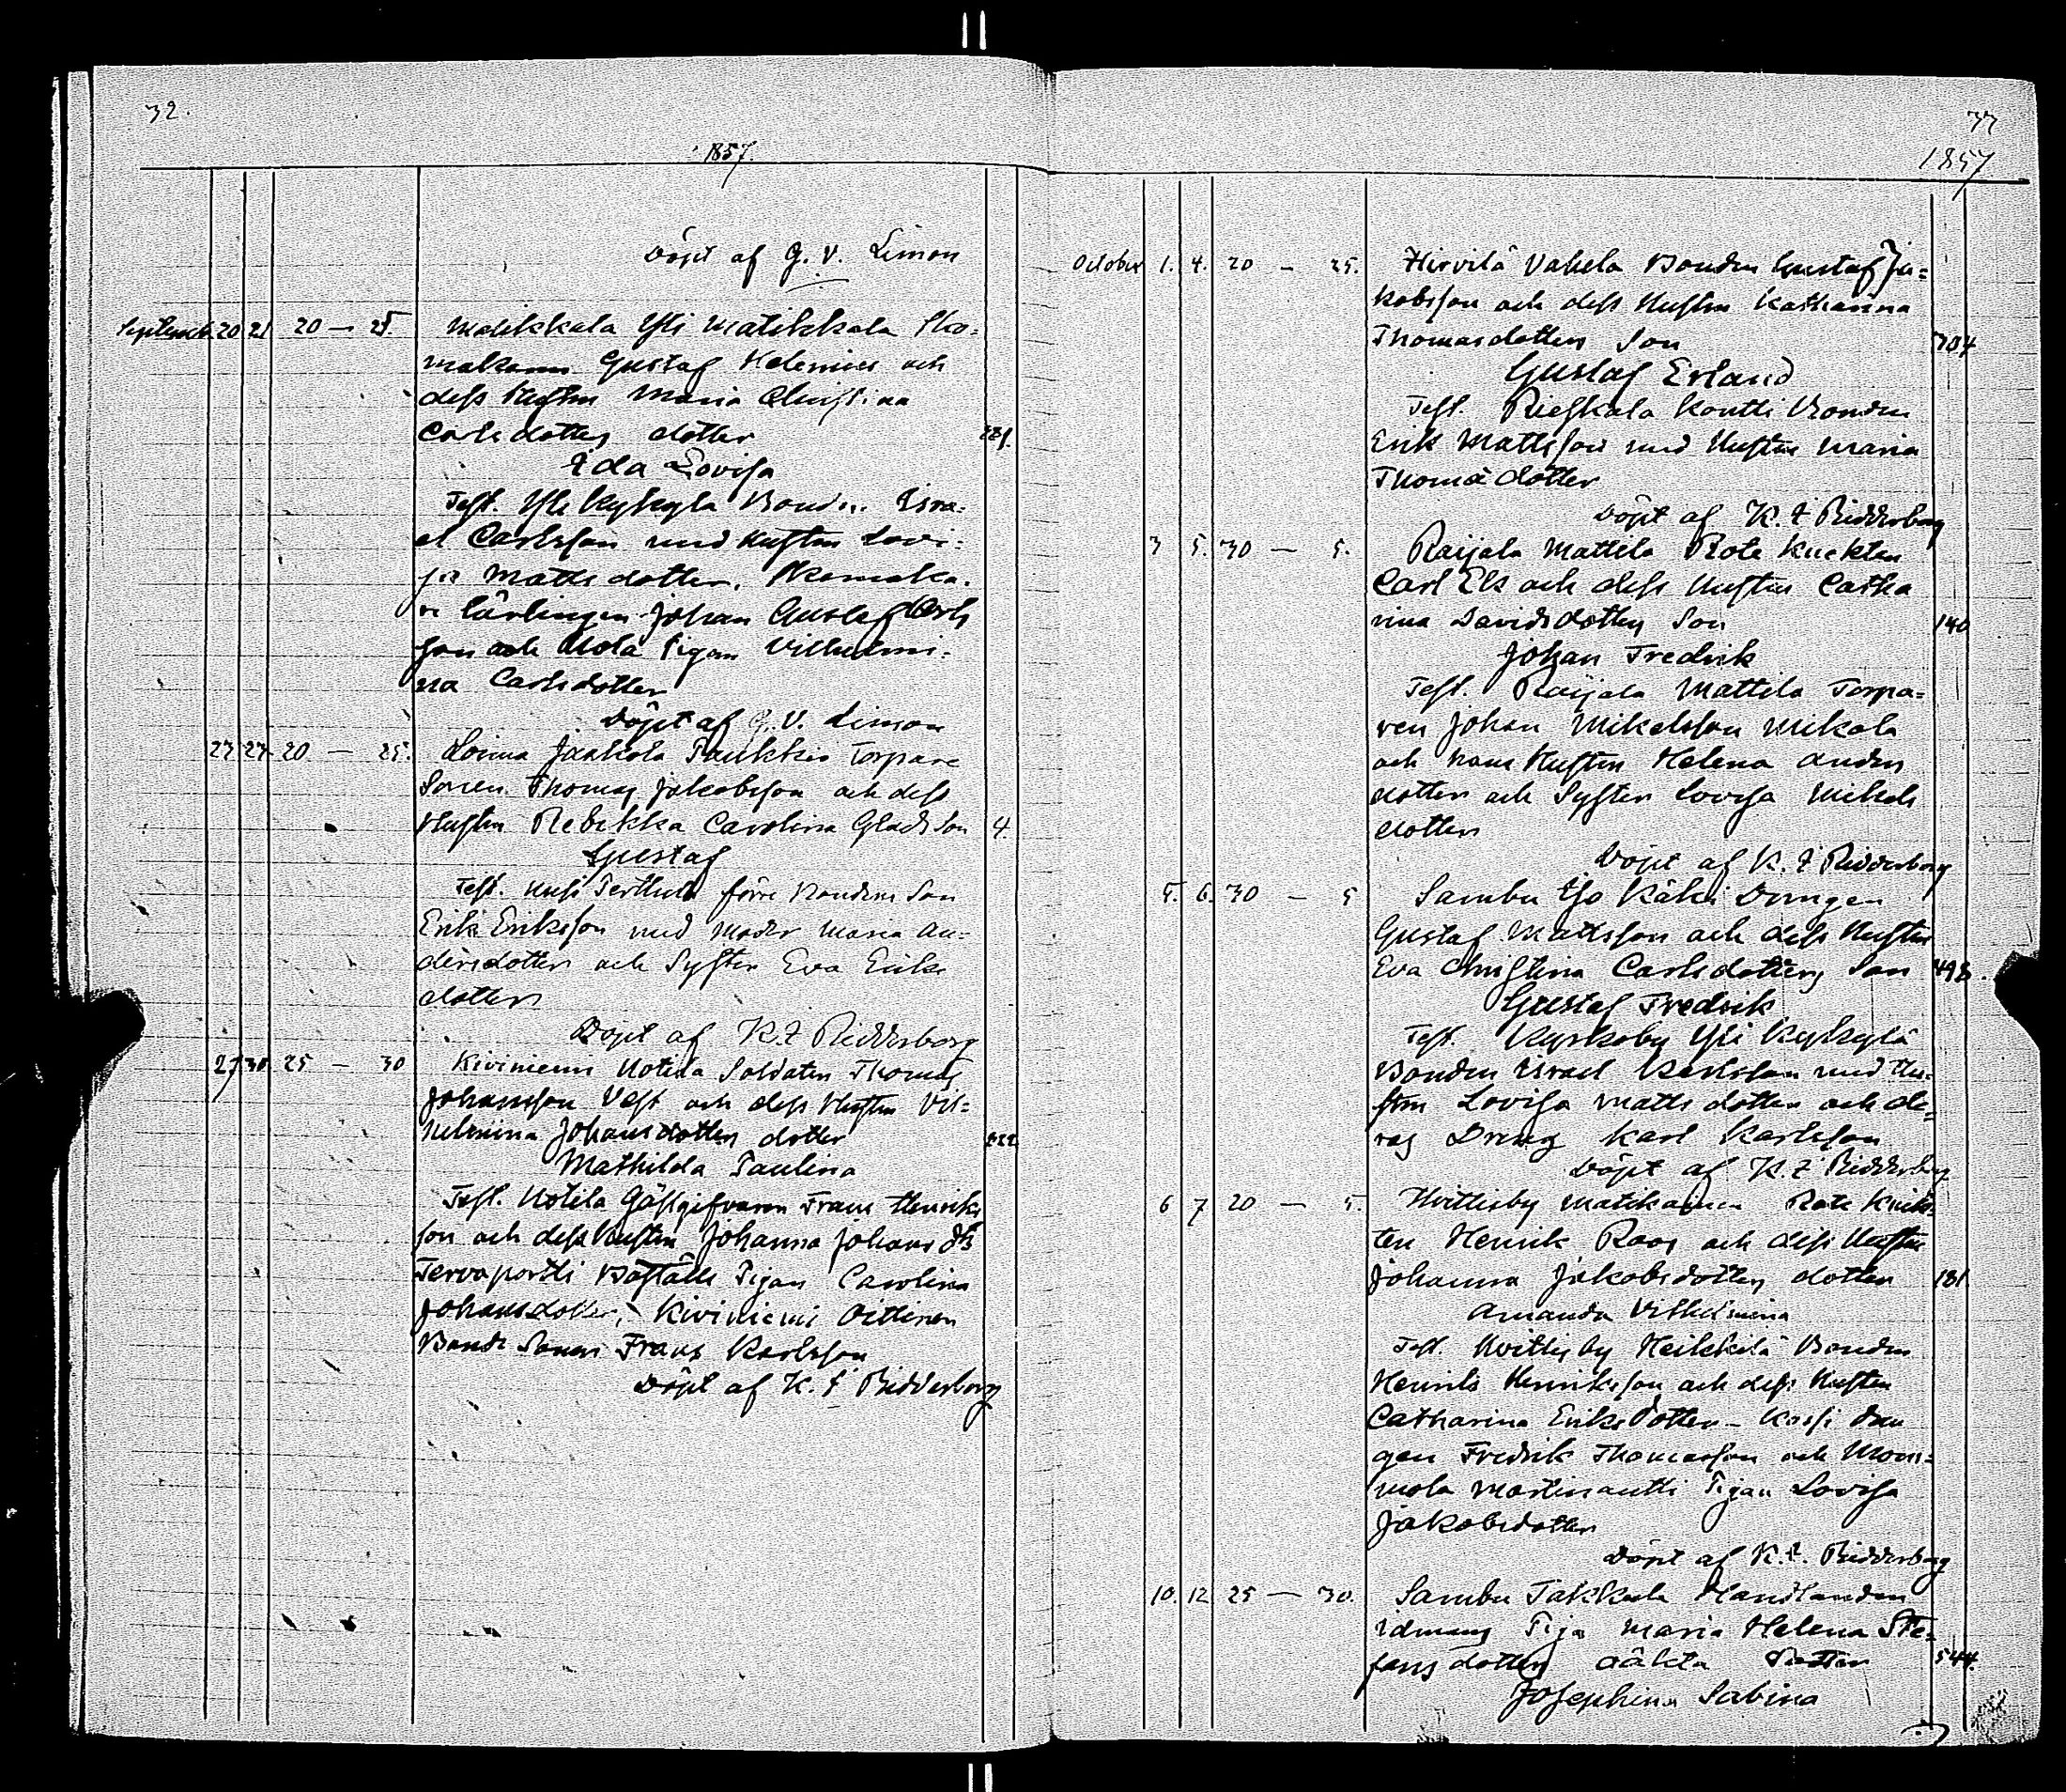 32.
1857.
Döpt af G. V. Limon
September 20 21 20 — 25. Matikkala Yli Matikkala Sko=
makaren Gustaf Helenius och
dess Hustru Maria Christina
Carlsdotters dotter
Ida Lovisa
Test. Yli Kyhkylä Bonden Isra=
el Carlsson med Hustru Lovi=
sa Matts dotter, Skomaka.
re lärlingen Johan Gustaf Carls
son och Pigan Vilhelmi=
na Carlsdotter
Döpt af G. V. Limon
27 27 20 — 25. Loima Jaakola Torpare
Sonen Thomas Jakobsson och dess
Hustru Rebekka Carolina Glads Son 4.
Gustaf
Test. Perttula förre Bondens Son
Erik Eriksson med Moder Maria An=
dersdotter och Syster Eva Eriks
dotter
Döpt af K. F. Ridderborg
27 30 25 — 30 Kiviniemi Uotila Soldaten Thomas
Johansson Vest och dess Hustru Vil=
helmina Johansdotters dotter
Mathilda Paulina
Test. Uotila Gästgifvaren Frans Henriks
son och dess Hustru Johanna Johans dr
Tervaportti Boställe Pigan Carolina
Johansdotter, Kiviniemi Orttinen
Bonde Sonen Frans Karlsson
Döpt af K. F. Ridderborg
33
1857
October 1. 4. 20 — 25. Hirvilä Vahela Bonden Gustaf Ja=
kobsson och dess Hustru Katharina
Thomasdotters Son 704
Gustaf Erland
Test. Rieskala Kontti Bonden
Erik Mattsson med Hustru Maria
Thomasdotter
Döpt af K. F. Ridderborg
3 5. 30 — 5. Raijala Mattila Rote Knekten
Carl Ek och dess Hustru Catha
rina Davidsdotters Son 140
Johan Fredrik
Test. Raijala Mattila Torpa=
ren Johan Mikelsson Mikola
och hans Hustru Helena Anders
dotter och Syster Lovisa Mikels
dotter
Döpt af K. F. Ridderborg
5. 6. 30 — 5 Sambu Yso Kähi Drängen
Gustaf Mattsson och dess Hustru
Eva Christina Carlsdotters Son 498.
Gustaf Fredrik
Test. Kyrkoby Yli Kyhkylä
Bonden Israel Karlsson med Hu=
stru Lovisa Matts dotter och de=
ras Dreng Karl Karlsson
Döpt af K. F. Ridderborg
6 7 20 — 5. Hvittisby Matikainen Rote Knek=
ten Henrik Roos och dess Hustru
Johanna Jakobsdotters dotter 181
Amanda Vilhelmina
Test. Hvittisby Heikkilä Bonden
Henrik Henriksson och dess Hustru
Catharina Eriksdotter — Kossi Drän
gen Fredrik Thomasson och
Pigan Lovisa
Jakobsdotter
Döpt af K. F. Ridderborg
10. 12 25 — 30. Sambu Takkula Handlanden
Idmans Piga Maria Helena Ste=
fansdotters oäkta Dotter 544.
Josephina Sabina